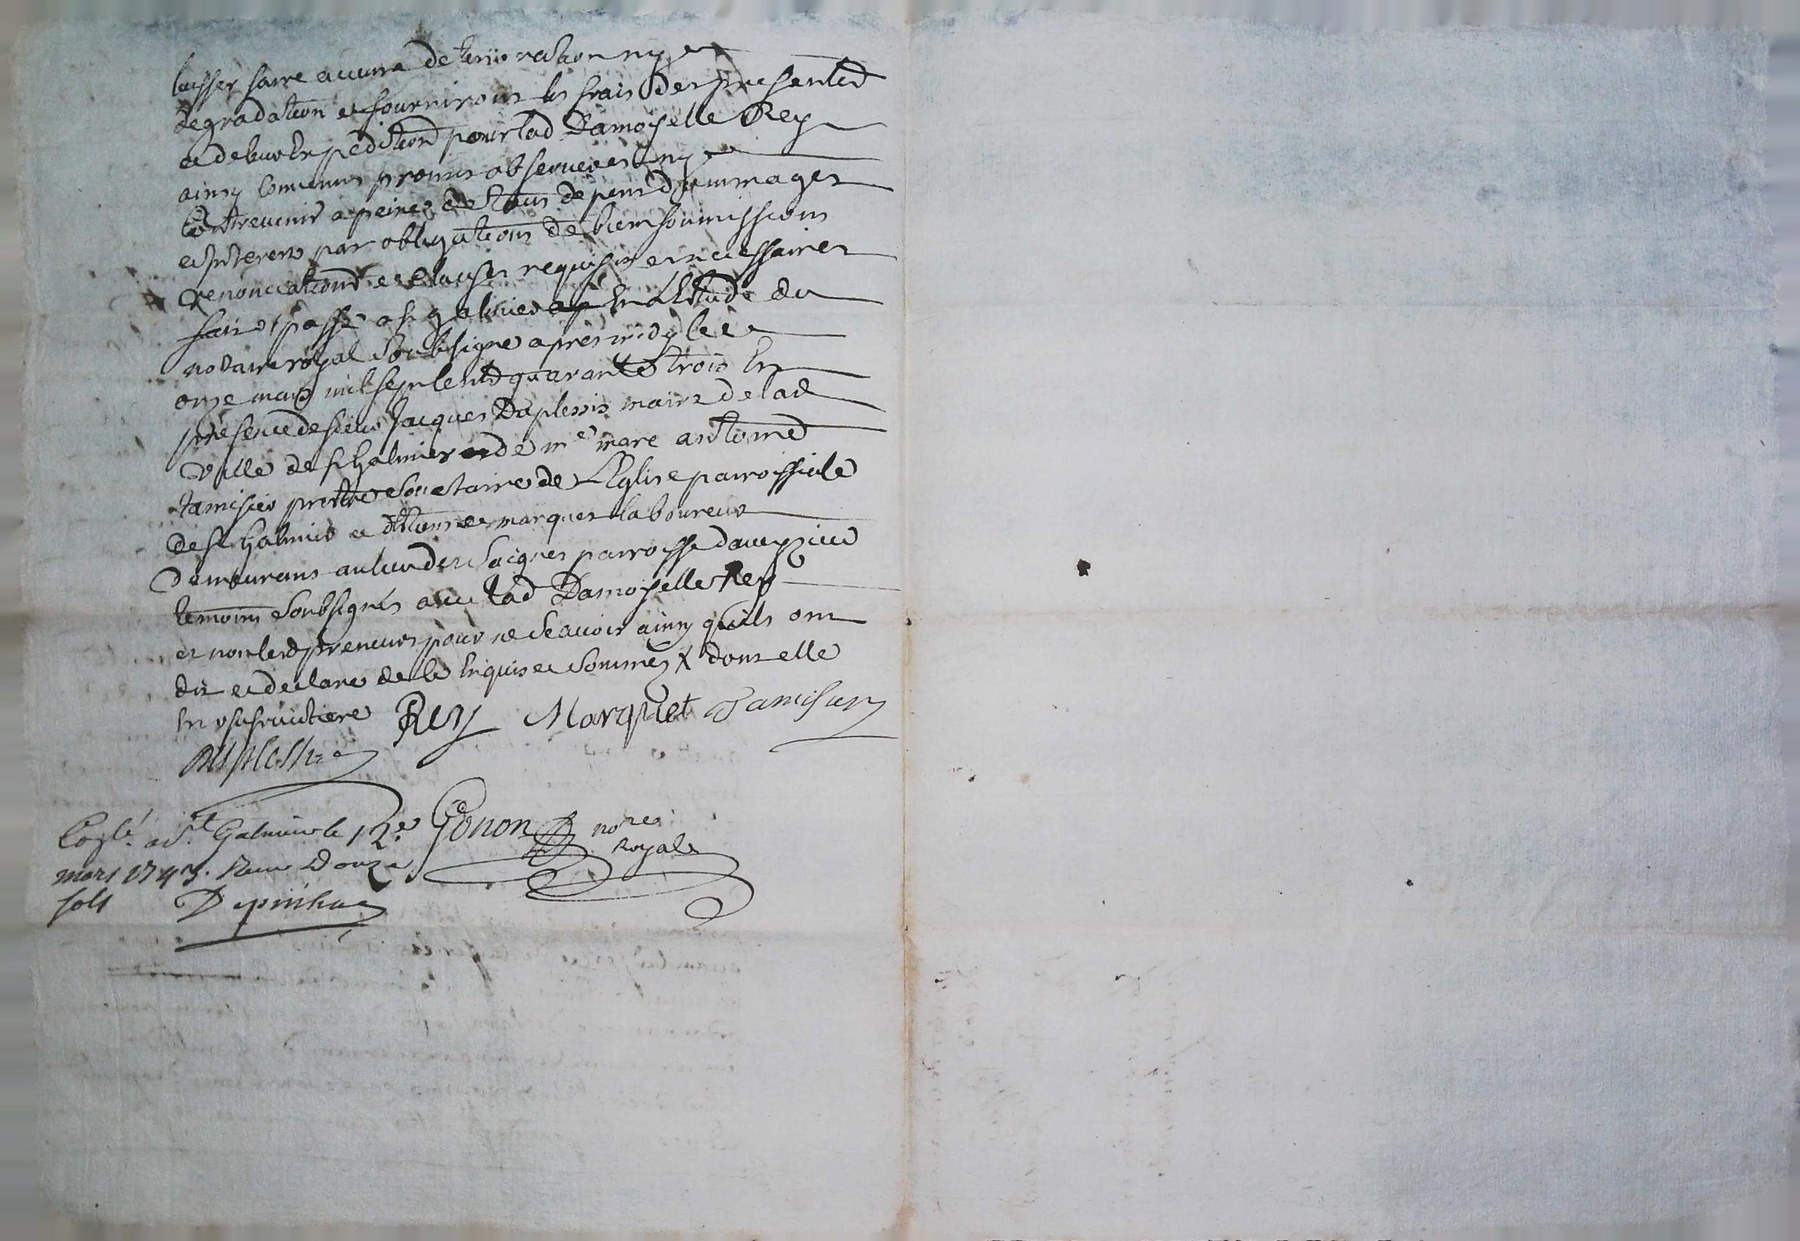 laisser faire aucune deterioration ny
degradation et fourniront les frais des presented
et de leur Expedition pour lad Damoyselle Rey
ainsy Convenus promis observer et ny
Contrevenir a peines de tous depens dommages
et Interets par obligations de biens soumissions
renonciations et clauses requises et necessaires
fait et passé a st galmier En Lettude du
notaire royal Soubsigne apres midy le
onze mars mil sept cents quarante trois En
presence de sieur Jacques Duplessis maire de lad
ville de st Galmier et de me marc antoine
tamisier pretre Societaire de L'Eglise parroissialle
de st Galmier et marques laboureur
demeurans au lieu des parroisse daveizieu
temoins Soubsignés avec lad Damoyselle Rey
et non lesd preneurs pour ne Scavoir ainsy quils ont
dit et declare de ce Enquis et Sommés X dont elle
En usufruictiere Rey Marquet Tamisier
Duplessis
Coñlé. a St. Galmier le 12e Gonon nore
mars 1743. Recu Douze Royal
sols Depinhac